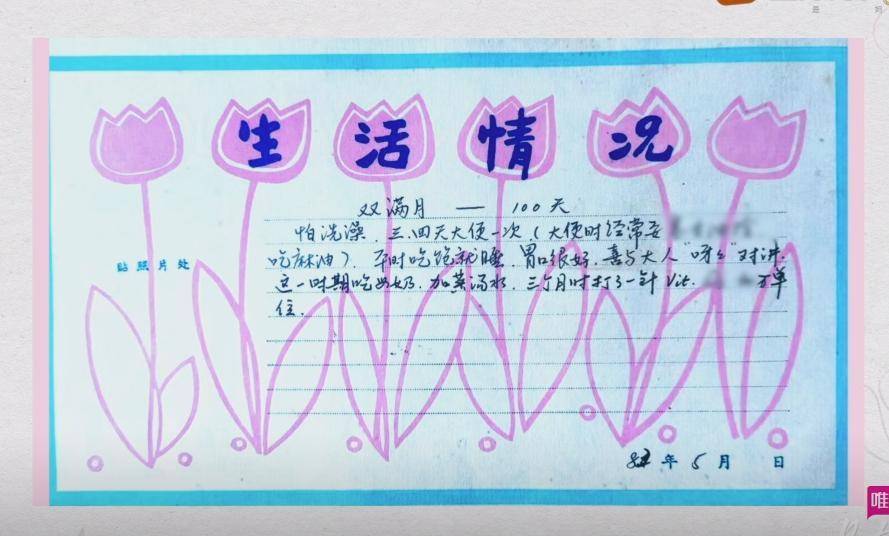 生活情况
双满月 — 100天
怕洗澡.三.四天大便一次(大便时经常要
吃麻油).平时吃饱就睡.胃口很好.喜与大人“呀々”对讲.
贴照片处
这一时期吃母奶.加菜汤水.三个月时打了一针Vit. 万单
位.
年5月 日
唯